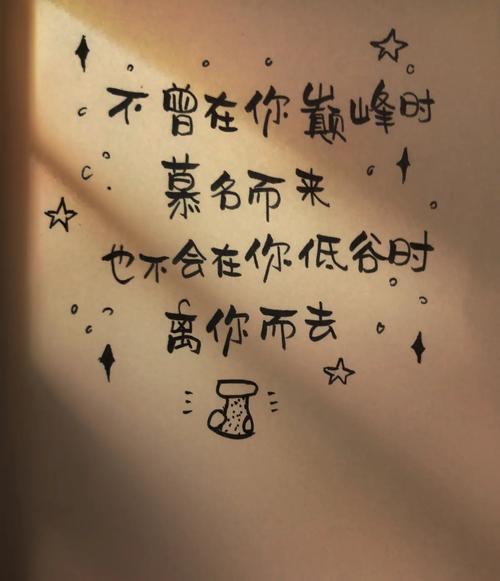 不曾在你巅峰时
慕名而来
也不会在你低谷时
离你而去